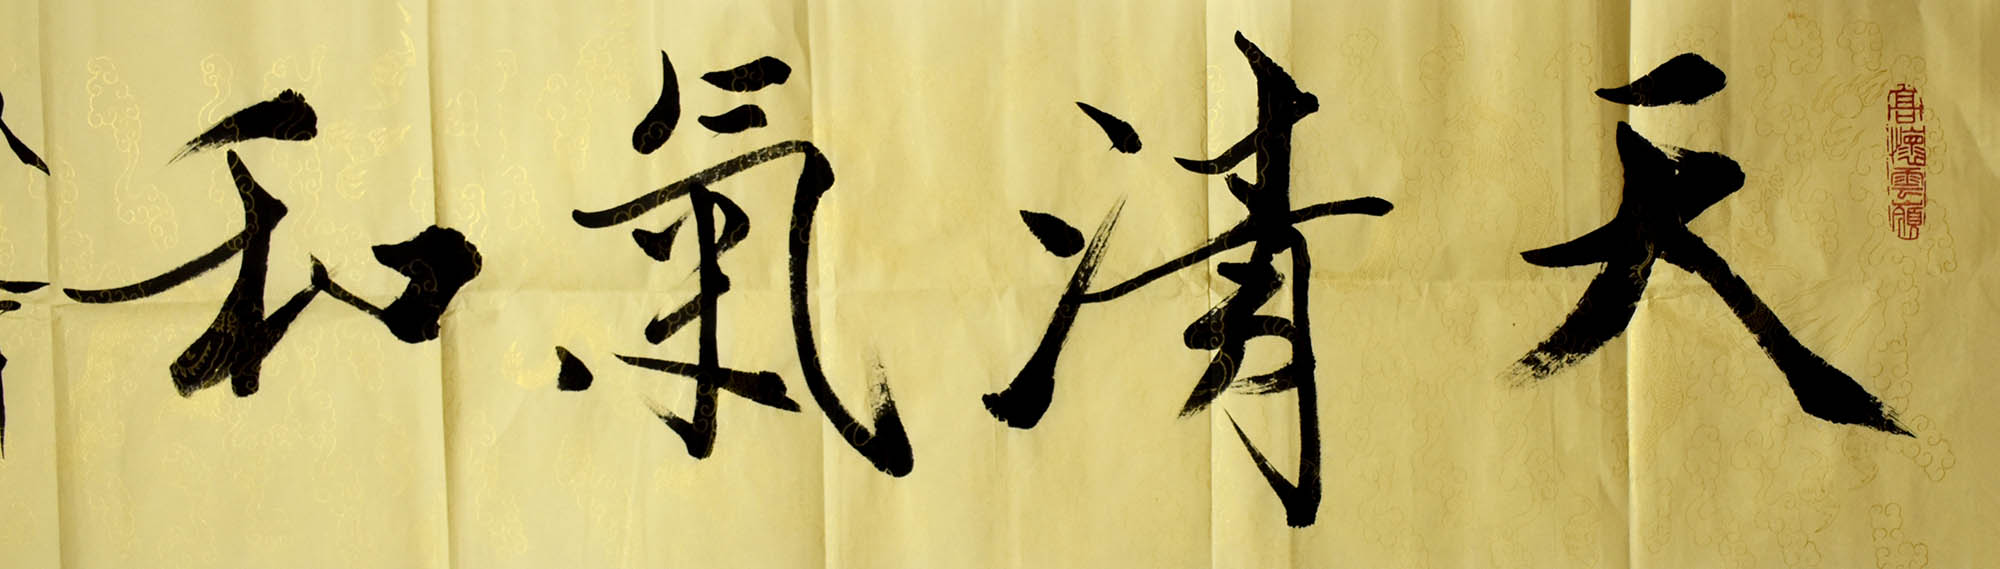 天清氣和